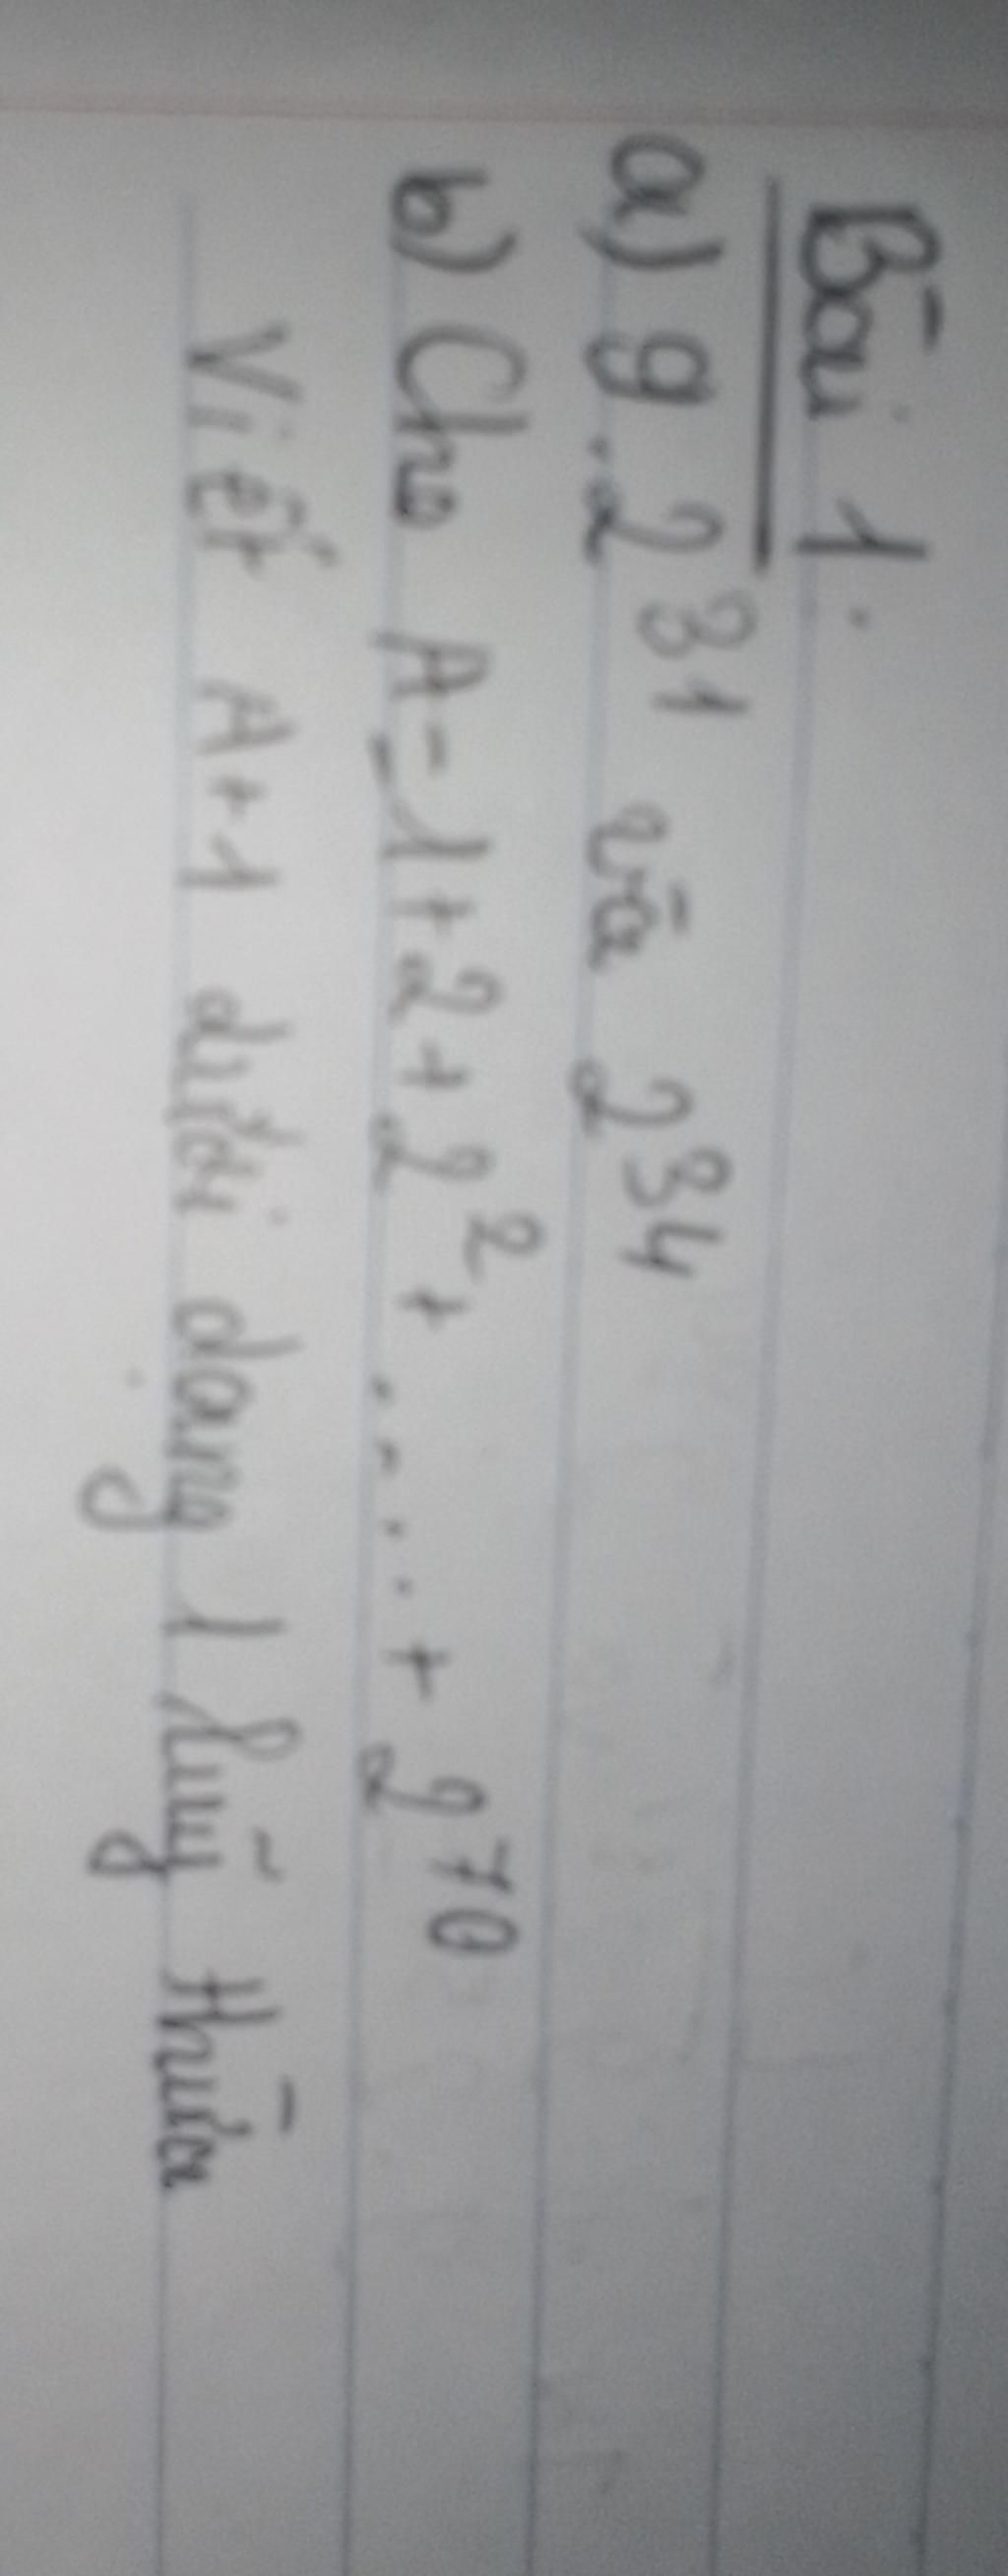 Bài 1.
a) 9.2³¹ và 2³⁴
b) Cho A = 1+2+2²+.....+2⁷⁰
Viết A+1 dưới dạng 1 luỹ thừa